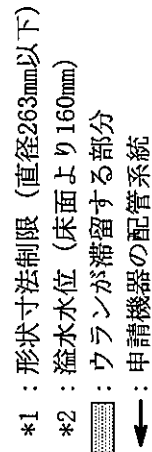 *1：形状寸法制限（直径263mm以下）
*2：溢水水位（床面より160mm）
：ウランが滞留する部分
：申請機器の配管系統